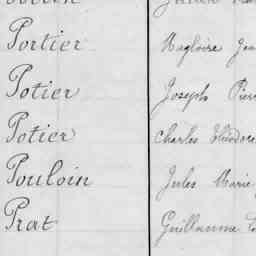 Portier Magloire Jean
Potier Joseph Pierre
Potier Charles Théodore
Pouloin Jules Marie
Prat Guillaume